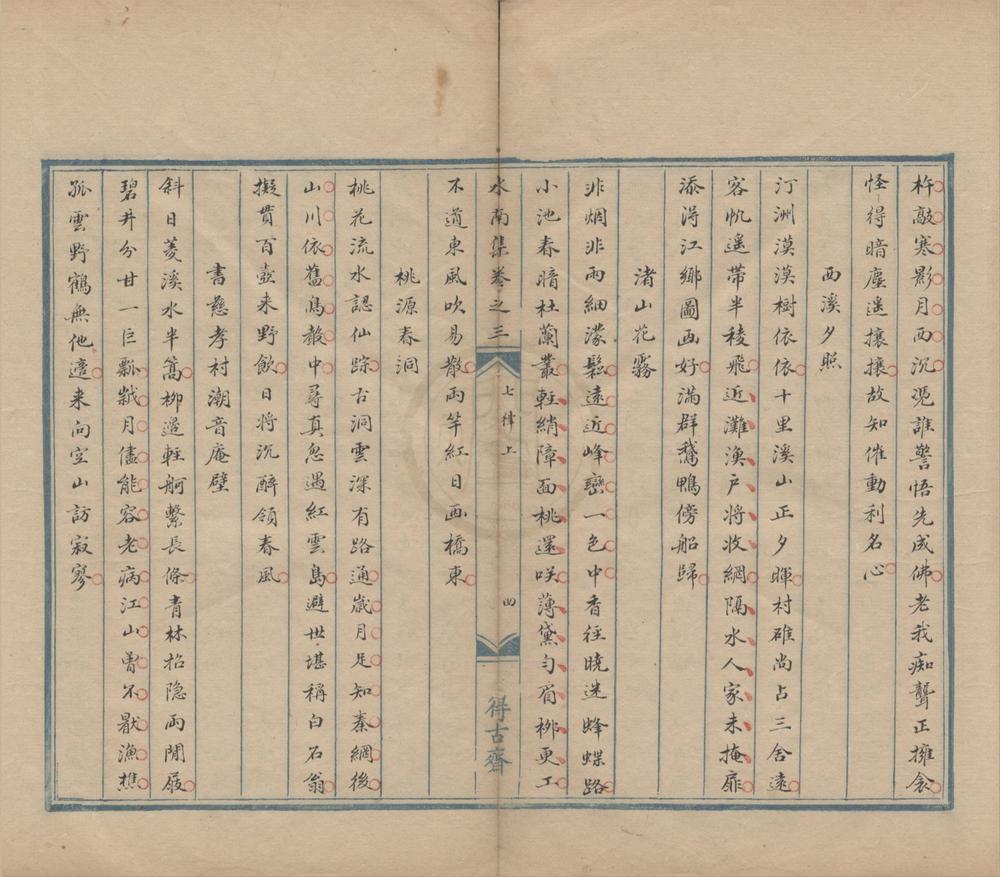 杵敲寒影月西沉憑誰警悟先成佛老我痴聾正擁衾
怪得暗塵遥攘攘故知催動利名心
西溪夕照
汀洲漠漠樹依依十里溪山正夕暉村碓尚占三舍遠
客帆遥帶半稜飛近灘漁戸將收網隔水人家未掩扉
添得江鄉圖画好滿群鵞鴨傍船歸
渚山花霧
非烟非雨細濛鬆遠近峰巒一色中香徑曉迷蜂蝶路
小池春暗杜蘭叢輕綃障面桃還咲薄黛勻眉栁更工
不道東風吹易散兩竿紅日画橋東
水南集卷之三
七律上
四
得古齋
桃源春洞
桃花流水認仙踪古洞雲深有路通歲月足知秦網後
山川依舊鳥聲中尋真忽過紅雲島避世堪稱白石翁
擬貰百壺来野飲日將沉醉領春風
書慈孝村潮音庵壁
斜日菱溪水半篙柳邊輕舸繫長條青林招隐兩閒屐
碧井分甘一巨瓢缾月儘能容老病江山曽不厭漁樵
孤雲野鶴無他適来向空山訪寂寥